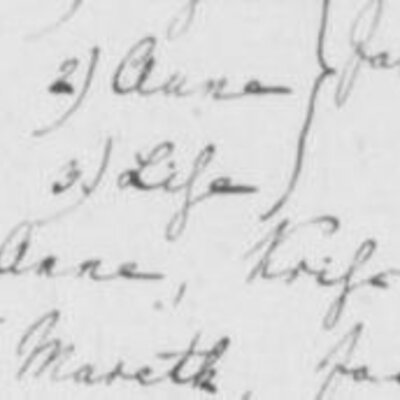 2) Anne
3) Lise
Anne, Kris
Mareth,